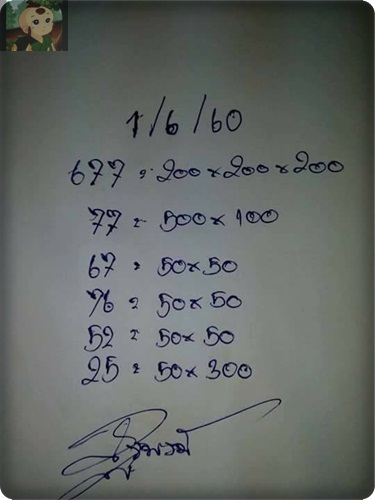 1/6/60
677 = 200 x 200 x 200
77 = 500 x 100
67 = 50 x 50
76 = 50 x 50
52 = 50 x 50
25 = 50 x 300